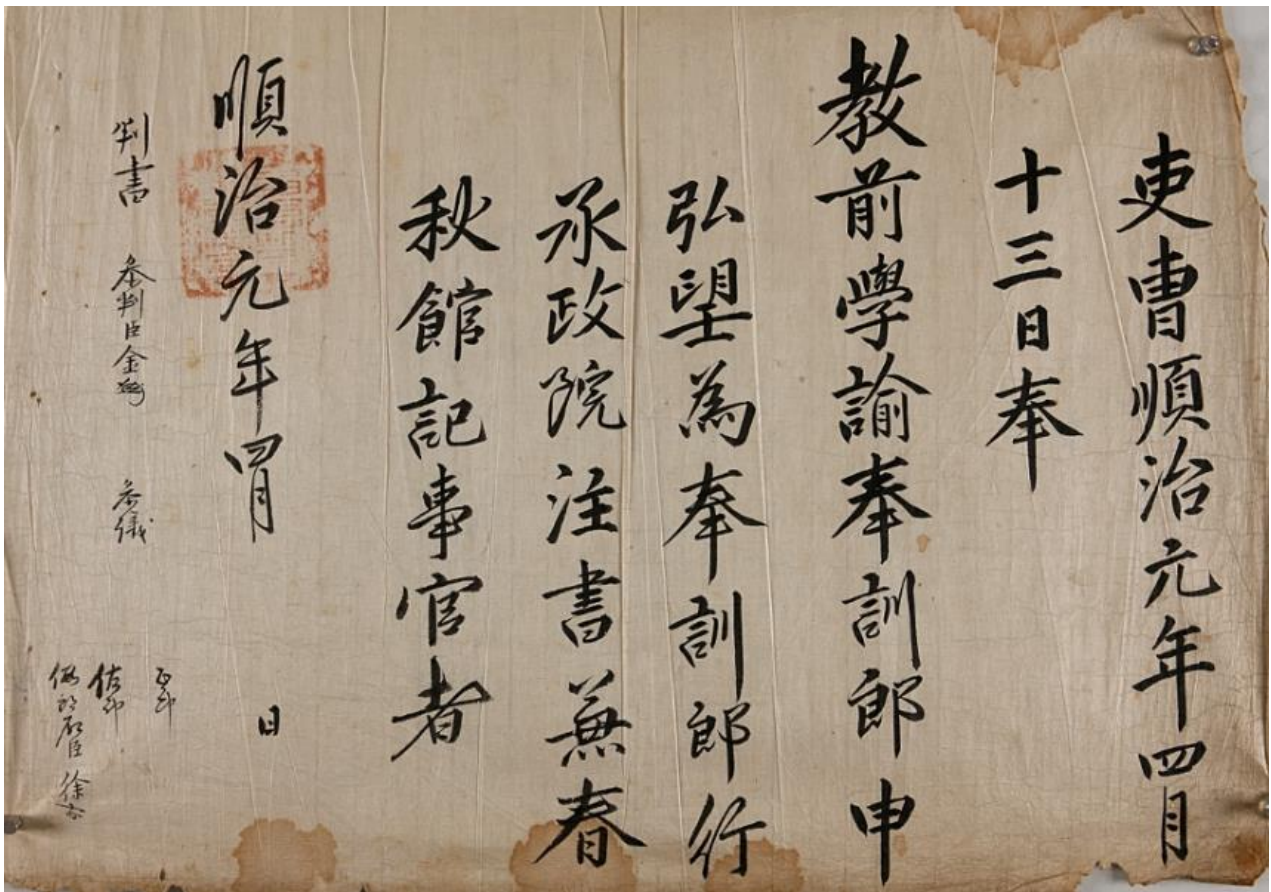 吏曹順治元年四月
十三日奉
教前學諭奉訓郎申
弘望為奉訓郎行
承政院注書兼春
秋館記事官者
順治元年四月 日
判書 參判臣金 參議
正郎
佐郎
臣徐